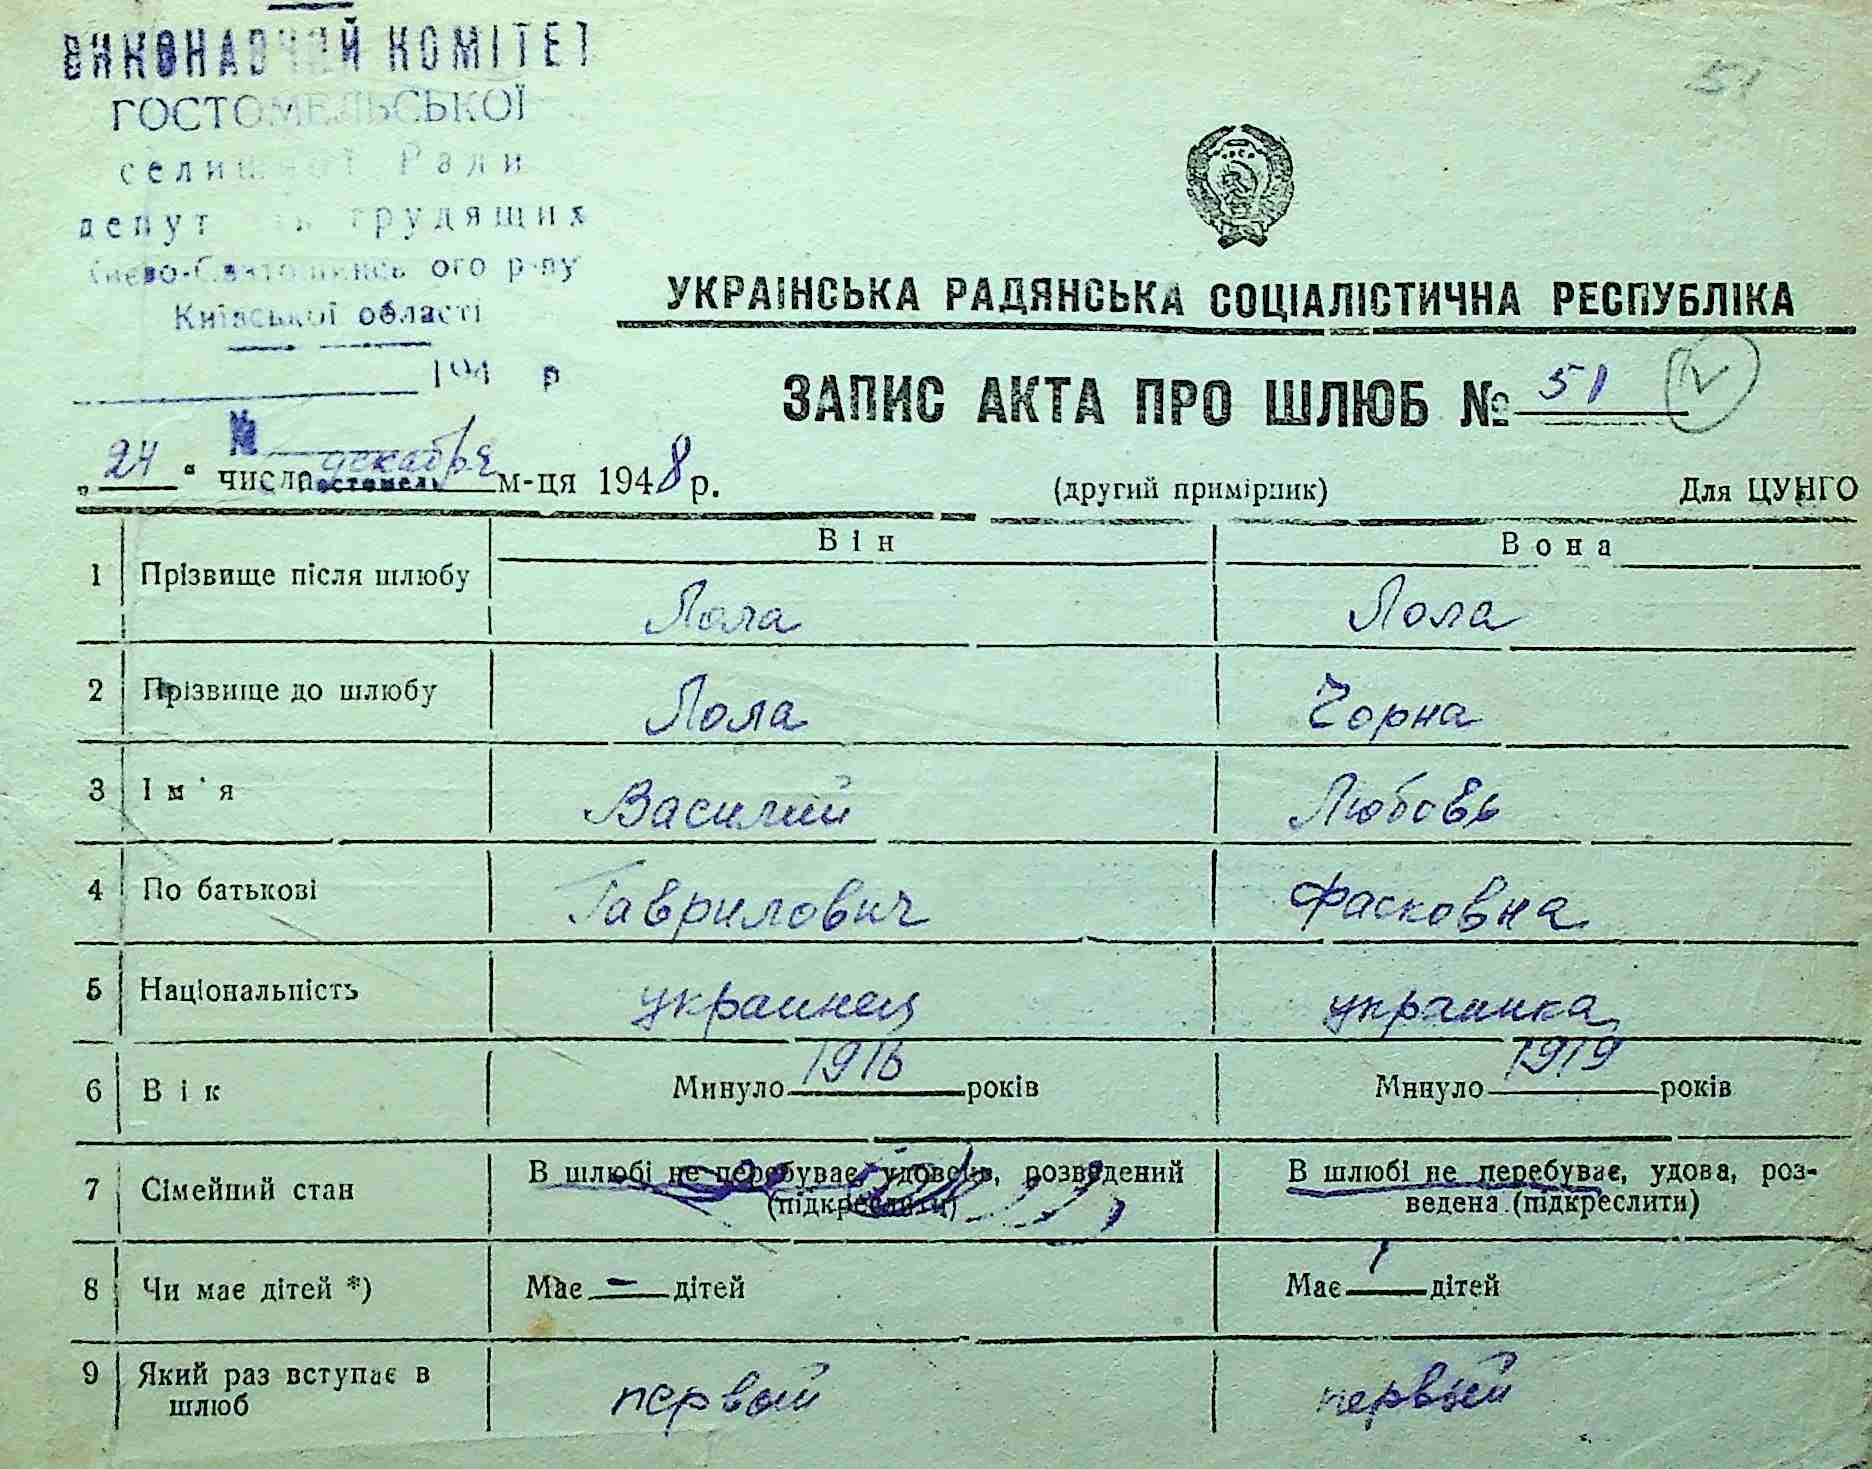 ВИКОНАВЧИЙ КОМІТЕТ
ГОСТОМЕЛЬСЬКОЇ
селищної Ради
депутатів трудящих
Києво-Святошинського р-ну
Київської області
194 р
№
51
УКРАЇНСЬКА РАДЯНСЬКА СОЦІАЛІСТИЧНА РЕСПУБЛІКА
ЗАПИС АКТА ПРО ШЛЮБ № 51
„24“ числа декабря м-ця 1948 р.
(другий примірник) Для ЦУНГО
Він Вона
1 Прізвище після шлюбу Лола Лола
2 Прізвище до шлюбу Лола Чорна
3 Ім'я Василий Любовь
4 По батькові Гаврилович Фасковна
5 Національність украинец украинка
6 Вік Минуло 1916 років Минуло 1919 років
7 Сімейний стан В шлюбі не перебуває, удовець, розведений В шлюбі не перебуває, удова, роз-
(підкреслити) ведена (підкреслити)
8 Чи має дітей *) Має – дітей Має 1 дітей
9 Який раз вступає в первый первый
шлюб